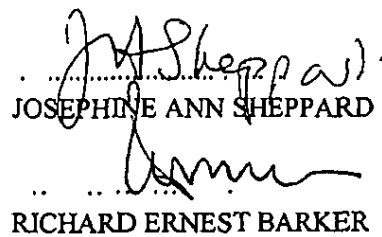 JA Sheppard
JOSEPHINE ANN SHEPPARD
RICHARD ERNEST BARKER